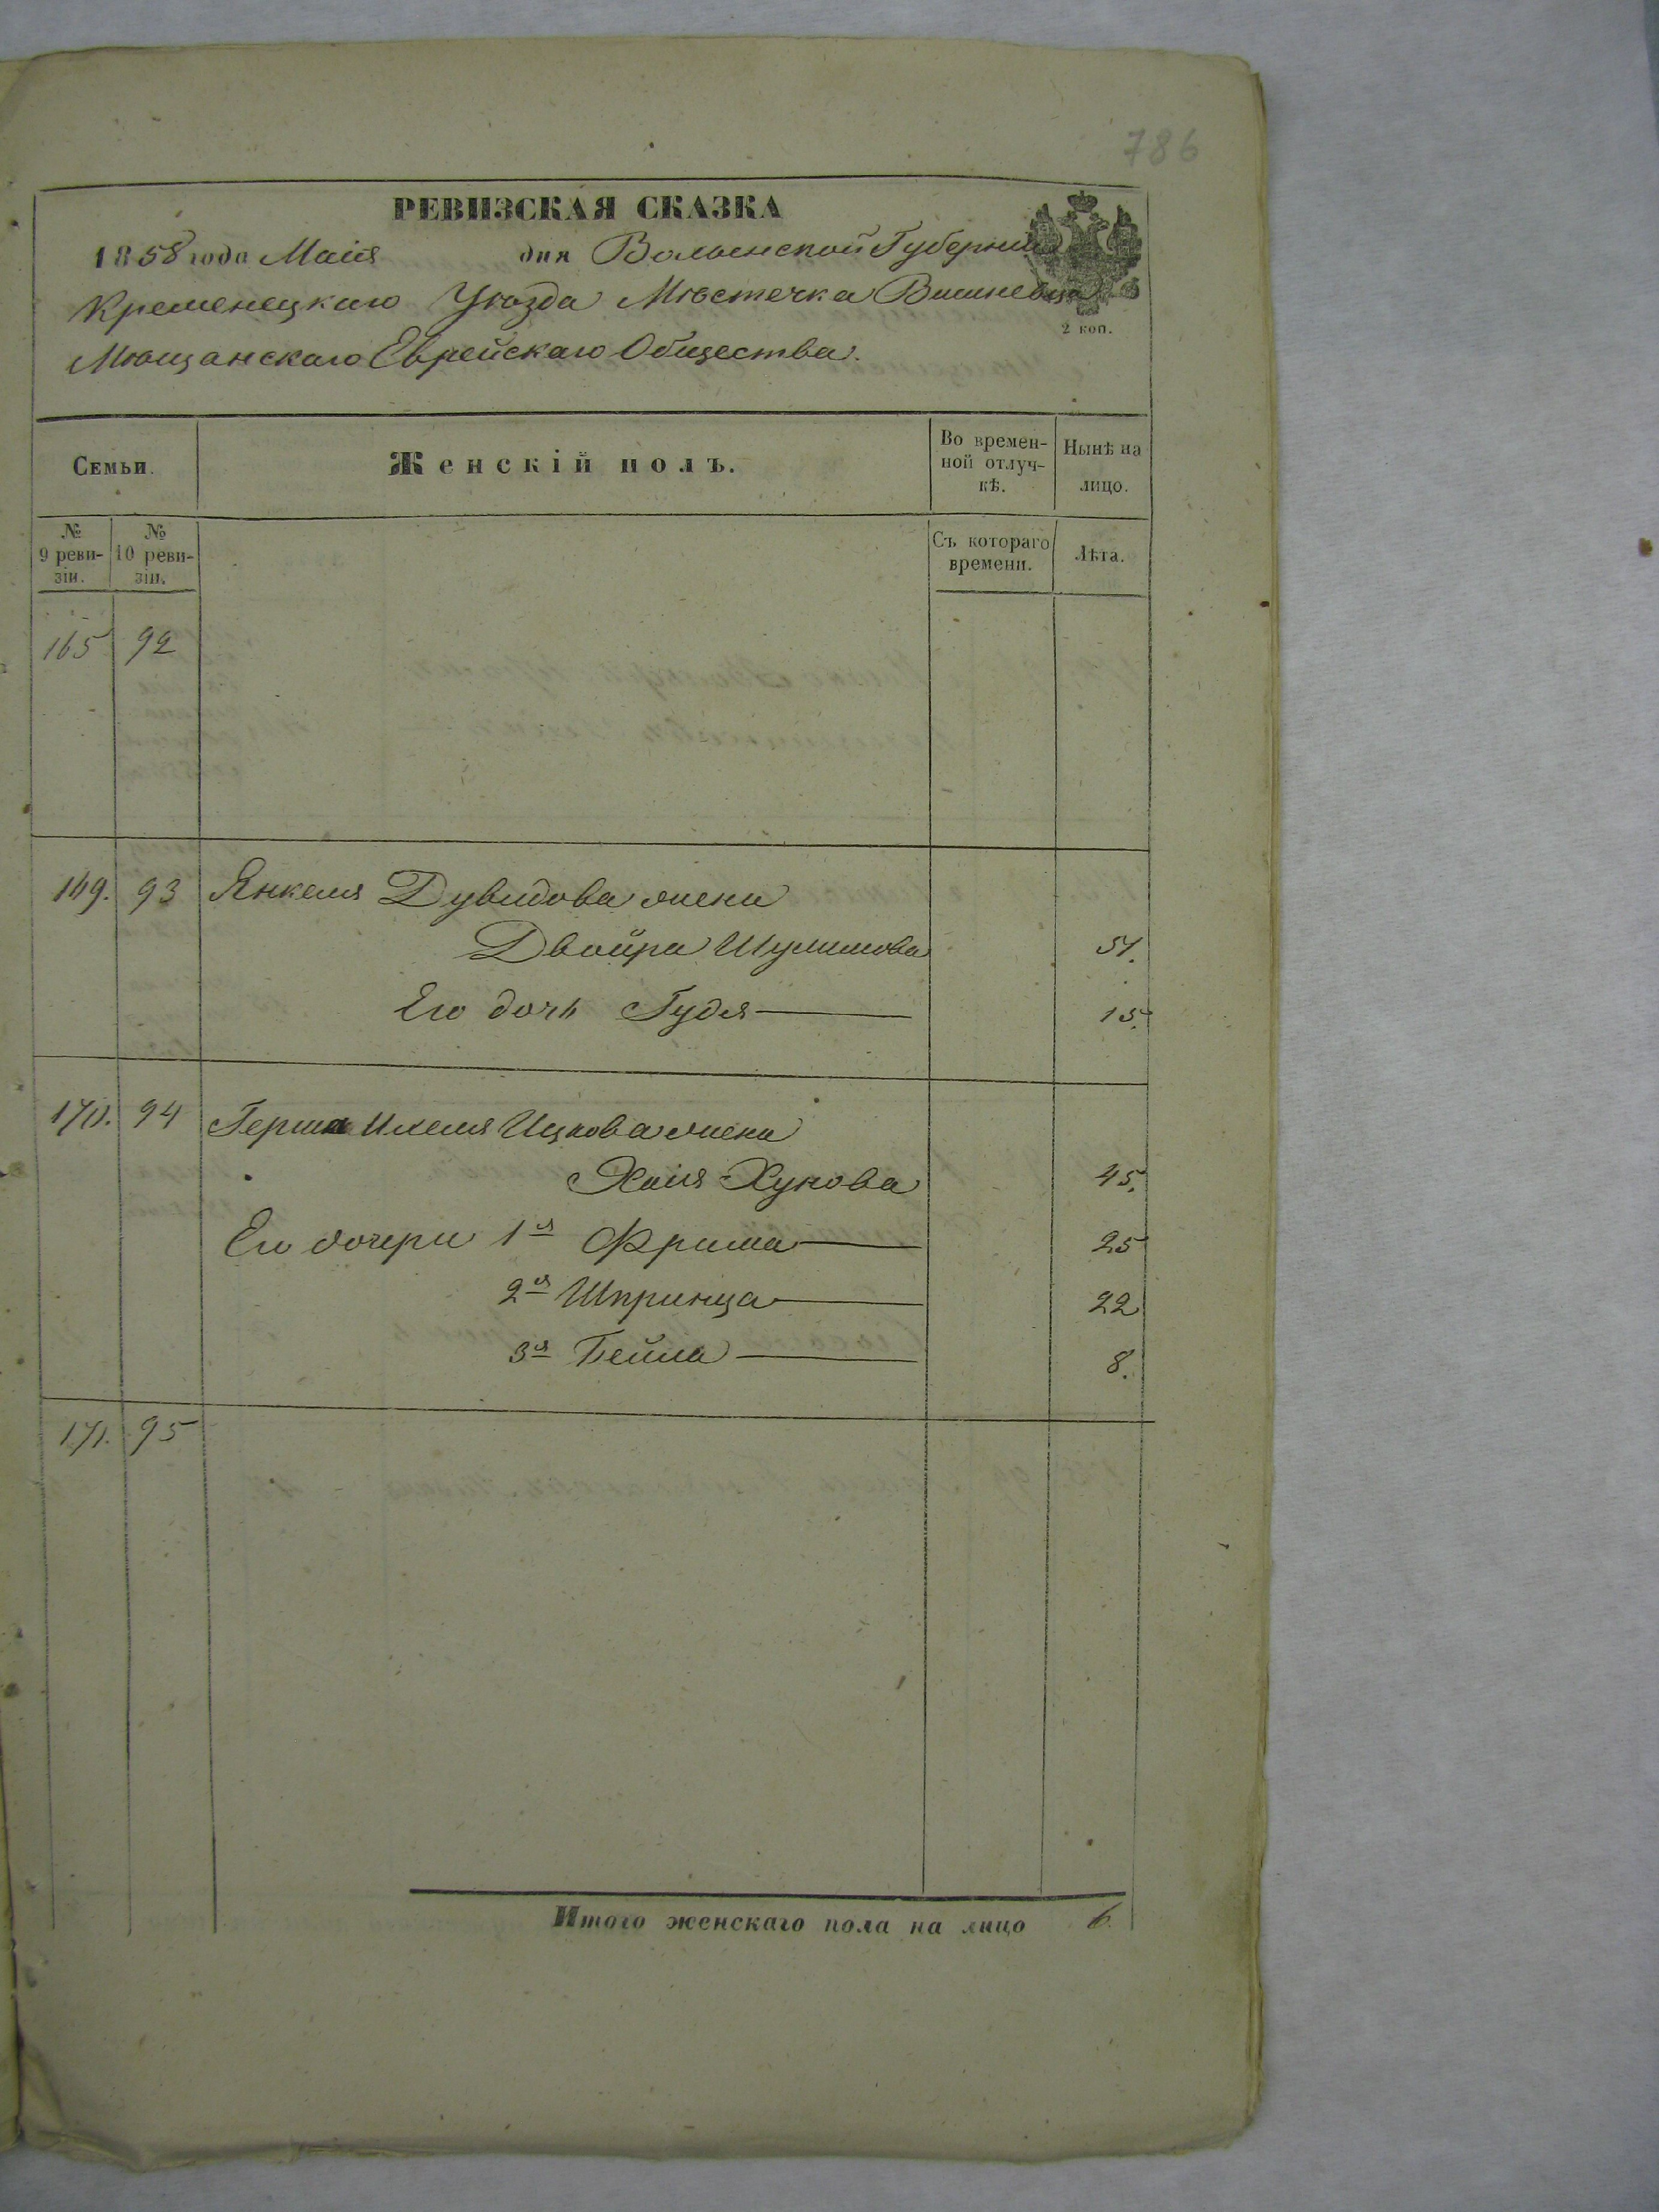 786
РЕВИЗСКАЯ СКАЗКА
1858 года Маія дня Волынской Губерніи
Кременецкаго Уѣзда Мѣстечка Вишневца
2 коп.
Мѣщанскаго Еврейскаго Общества.
Семьи. Женскій полъ. Во времен-ной отлуч-кѣ. Нынѣ на лицо.
№ 9 реви-зіи. № 10 реви-зіи. Съ котораго времени. Лѣта.
165 92
169. 93 Янкеля Дувидова жена
Двойра Шулимова 51.
Его дочь Гудя 15.
170. 94 Герша Ицкова жена
Хаія Хунова 45.
Его дочери 1я Фрима 25
2я Шпринца 22
3я Бейла 8.
171. 95
Итого женскаго пола на лицо 6.